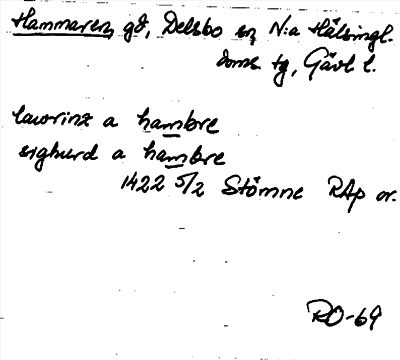 Hammaren gd, Delsbo sn N:a Hälsingl.
doms tg, Gävl l.
lawrinz a hambre
sighurd a hambre
1422 5/2 Stömne RAp or.
RO-69